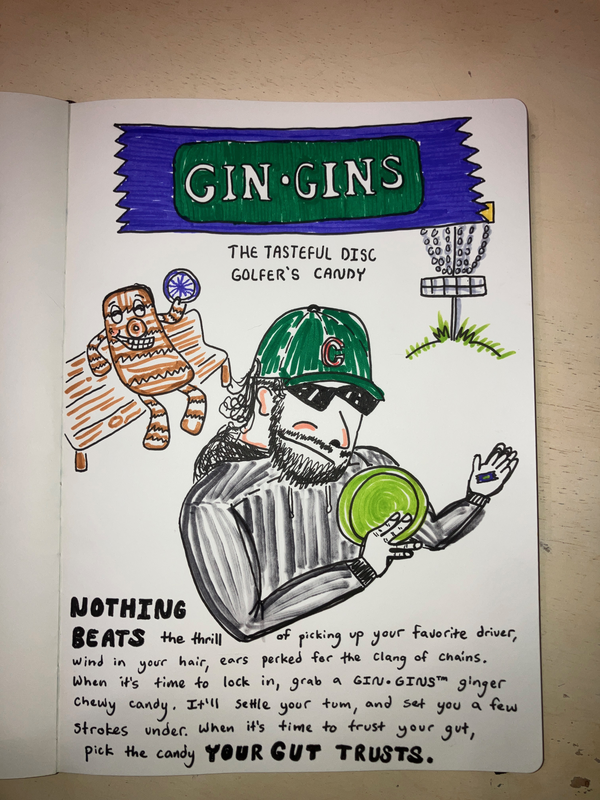 GIN·GINS
THE TASTEFUL DISC
GOLFER'S CANDY
C
NOTHING
BEATS the thrill of picking up your favorite driver,
wind in your hair, ears perked for the clang of chains.
When it's time to lock in, grab a GIN·GINS™ ginger
chewy candy. It'll settle your tum, and set you a few
strokes under. When it's time to trust your gut,
pick the candy YOUR GUT TRUSTS.